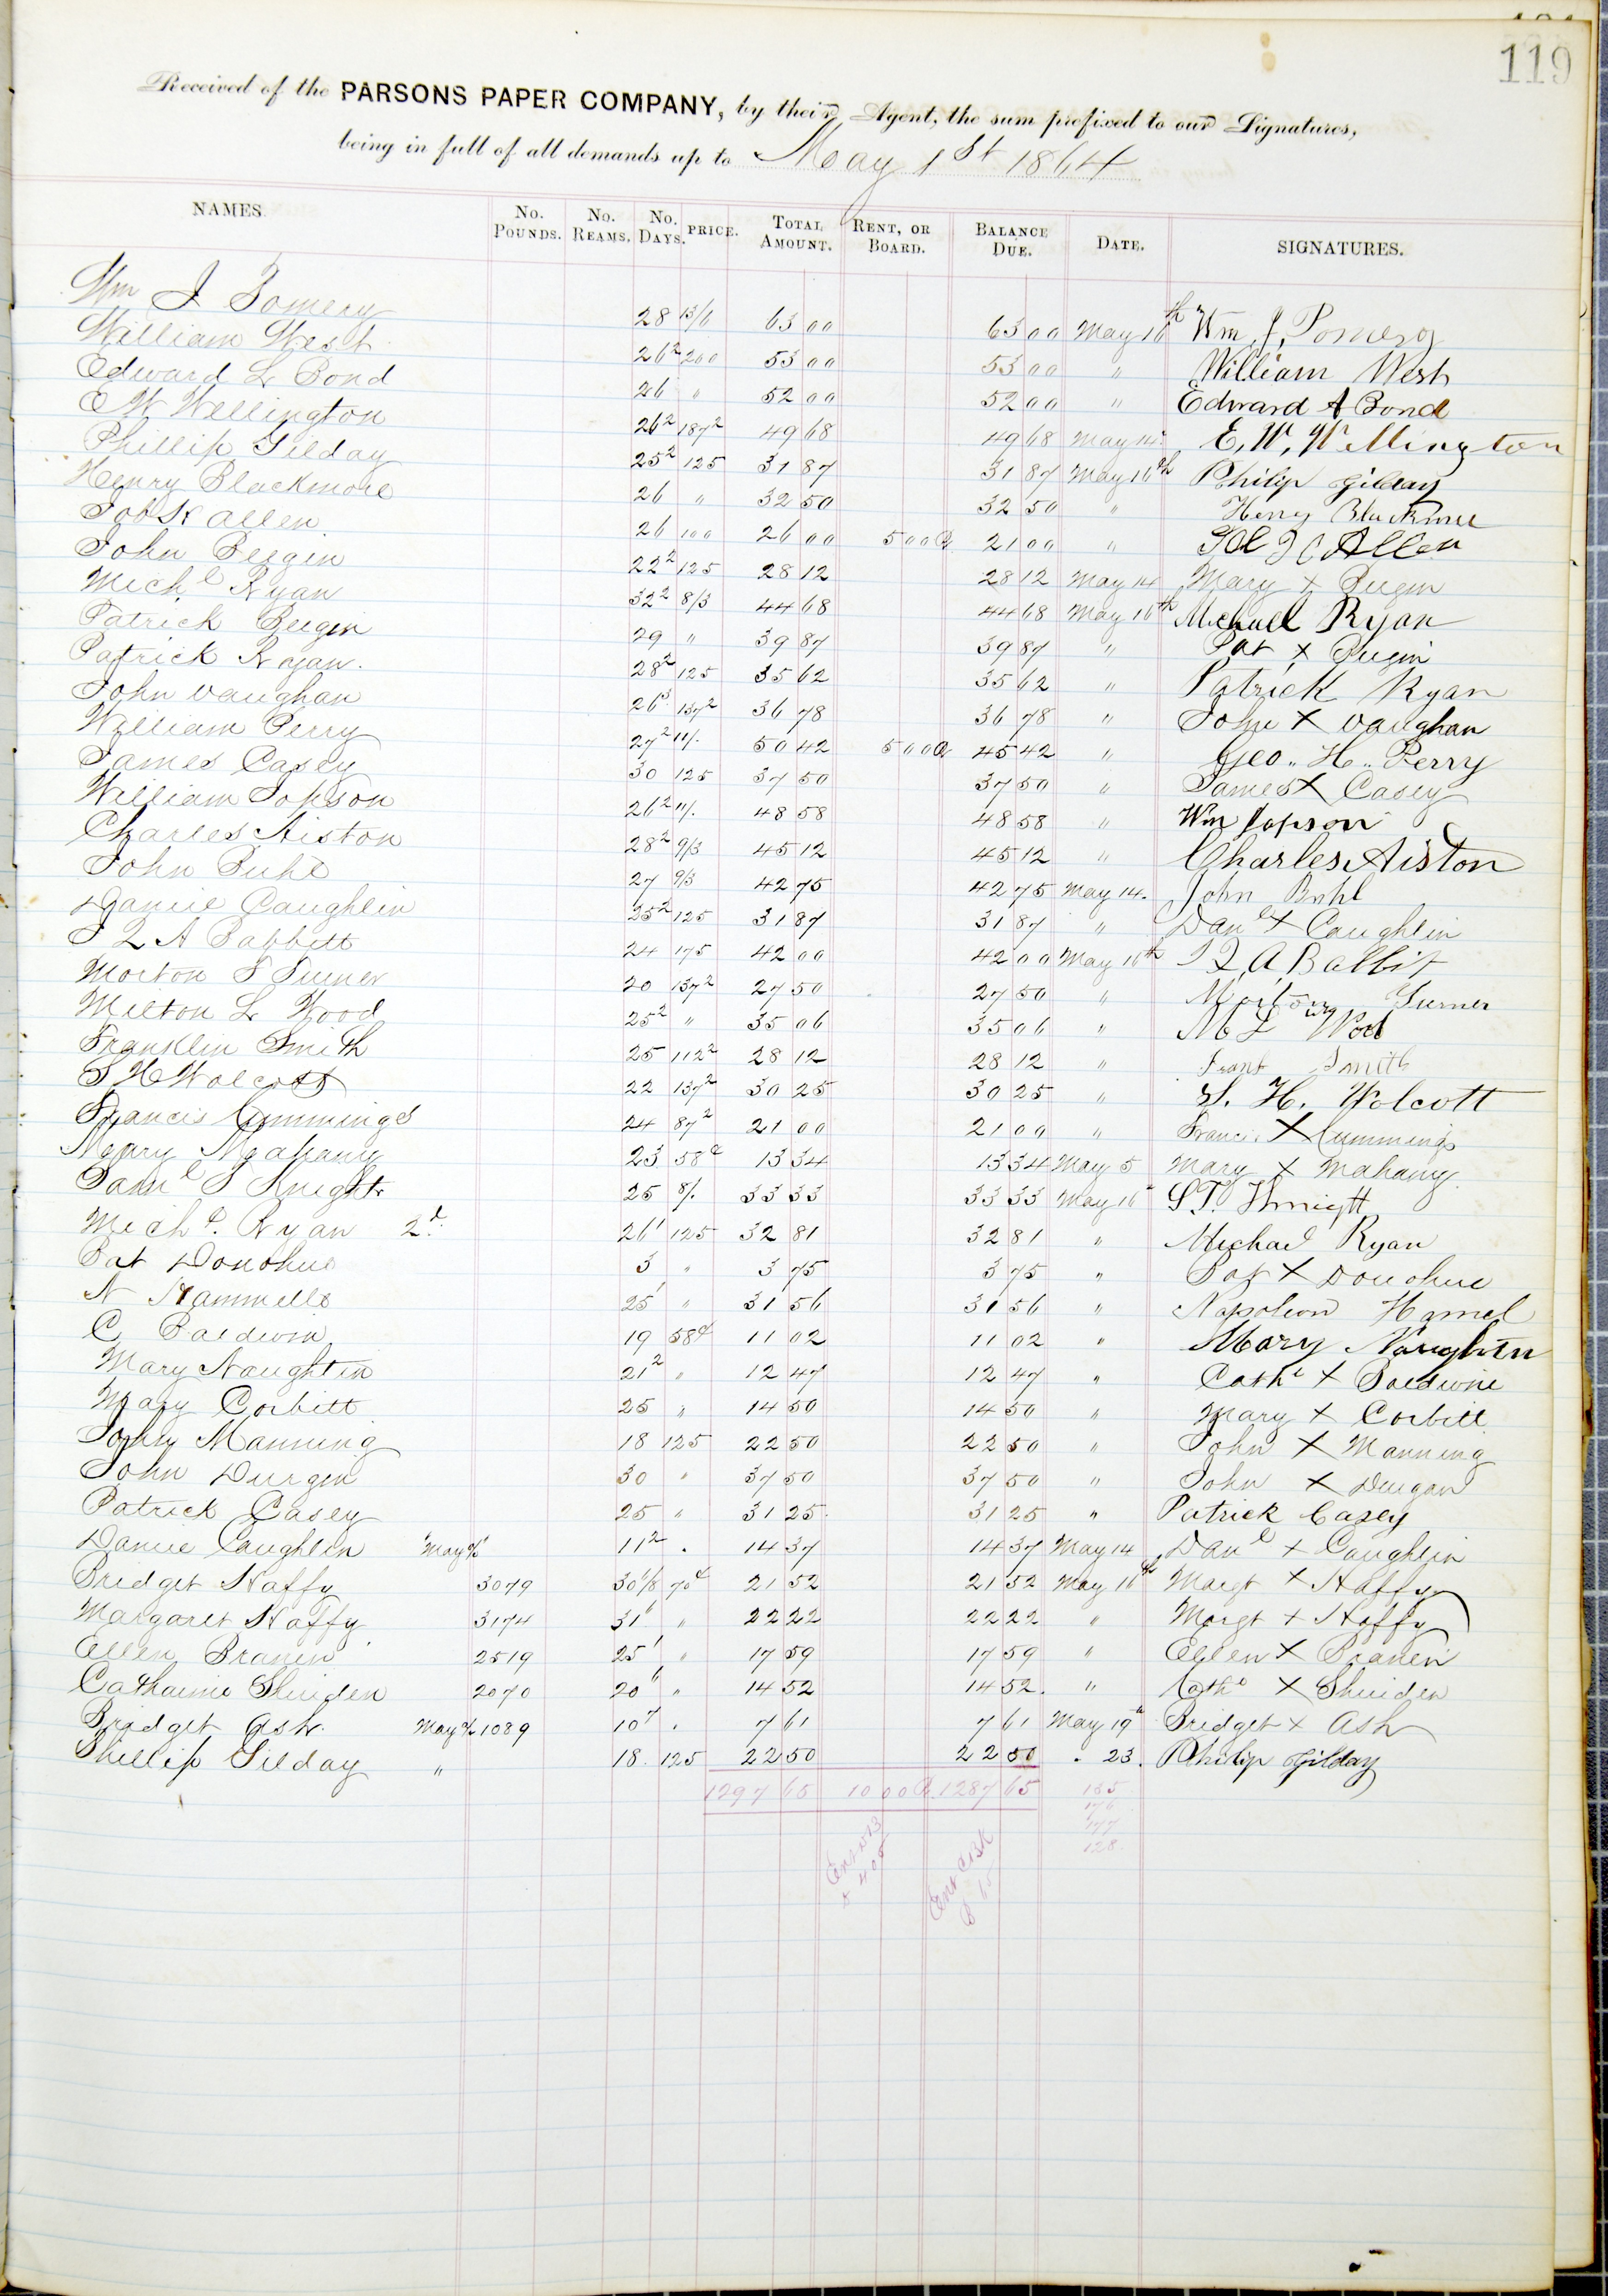 119
Received of the PARSONS PAPER COMPANY, by their Agent, the sum prefixed to our Signatures,
being in full of all demands up to May 1st 1864
NAMES. No. POUNDS. No. REAMS. No. DAYS. PRICE. TOTAL AMOUNT. RENT, OR BOARD. BALANCE DUE. DATE. SIGNATURES.
Wm J Pomery 28 13/6 63 00 63 00 May 16th Wm J. Pomeroy
William West 26 2 200 53 00 53 00 " William West
Edward L Bond 26 " 52 00 52 00 " Edward A Bond
E W Wellington 26 2 187 2 49 68 49 68 May 14 E. W. Wellington
Phillip Gilday 25 2 125 31 87 31 87 May 16th Philip Gilday
Henry Blackmore 26 " 32 50 32 50 " Henry Blackmore
Job K Allen 26 100 26 00 5 00 21 00 " Allen
John Bergin 22 2 125 28 12 28 12 May 14 Mary X Bergin
Michl Ryan 32 2 8/3 44 68 44 68 May 16th Michael Ryan
Patrick Bergin 29 " 39 87 39 87 " Pat X Bergin
Patrick Ryan. 28 2 125 35 62 35 62 " Patrick Ryan
John Vaughan 26 3 137 2 36 78 36 78 " John X Vaughan
William Perry 27 2 11/. 50 42 5 00 45 42 " Geo.. H.. Perry
James Casey 30 125 37 50 37 50 " James X Casey
William Jopson 26 2 11/. 48 58 48 58 " Wm Jopson
Charles Aiston 28 2 9/3 45 12 45 12 " Charles Aiston
John Buhl 27 9/3 42 75 42 75 May 14. John Buhl
Daniel Caughlin 25 2 125 31 87 31 87 " Danl X Caughlin
J Q A Babbitt 24 175 42 00 42 00 May 16th J Q A Babbit
Morton S Turner 20 137 2 27 50 27 50 " Morton Turner
Milton L Wood 25 2 " 35 06 35 06 " M L Wood
Franklin Smith 25 112 2 28 12 28 12 " Frank Smith
S H Wolcott 22 137 2 30 25 30 25 " S. H. Wolcott
Francis Cummings 24 87 2 21 00 21 00 " Francis X Cummings
Mary Mahany 23 58 c 13 34 13 34 May 5 Mary X Mahany
Saml T Knight 25 8/. 33 33 33 33 May 16 S T. Knight
Michl. Ryan 2d. 26 1 125 32 81 32 81 " Michael Ryan
Pat Donohue 3 " 3 75 3 75 " Pat X Donohue
N Hammello 25 1 " 31 56 31 56 " Napoleon Hamel
C Baldwin 19 58 c 11 02 11 02 " Mary Naughtin
Mary Naughtin 21 2 " 12 47 12 47 " Cathe X Baldwin
Mary Corbitt 25 " 14 50 14 50 " Mary X Corbitt
John Manning 18 125 22 50 22 50 " John X Manning
John Durgin 30 " 37 50 37 50 " John X Durgan
Patrick Casey 25 " 31 25 31 25 " Patrick Casey
Daniel Caughlin May 11 2 . 14 37 14 37 May 14 Danl X Caughlin
Bridget Haffy 3079 30 1/8 70 c 21 52 21 52 May 16th Margt X Haffy
Margaret Haffy 3174 31 6 " 22 22 22 22 " Margt X Haffy
Ellen Branin 2519 25 1 " 17 59 17 59 " Ellen X Branin
Catharine Shuiden 2070 20 6 " 14 52 14 52. " Cathe X Shuiden
Bridget Ash. May 1089 10 7 . 7 61 7 61 May 19th Bridget X Ash
Phillip Gilday " 18. 125 22 50 22 50 . 23. Philip Gilday
1297 65 10 00 1287 65